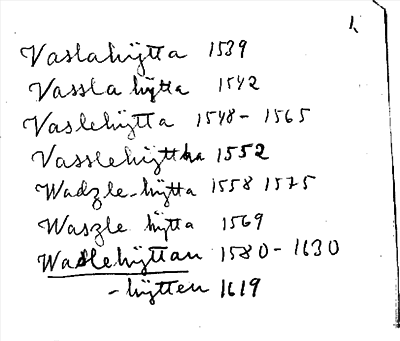 1.
Vaslahÿtta 1539
Vassla hÿtta 1542
Vaslehÿtta 1548-1565
Vasslehÿttha 1552
Wadzle-hÿtta 1558 1575
Waszle hÿtta 1569
Wadlehÿttan 1580-1630
-hÿtten 1619